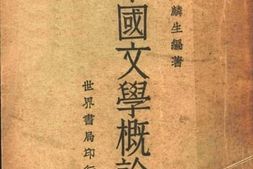 麟生編著
國文學概論
世界書局印行